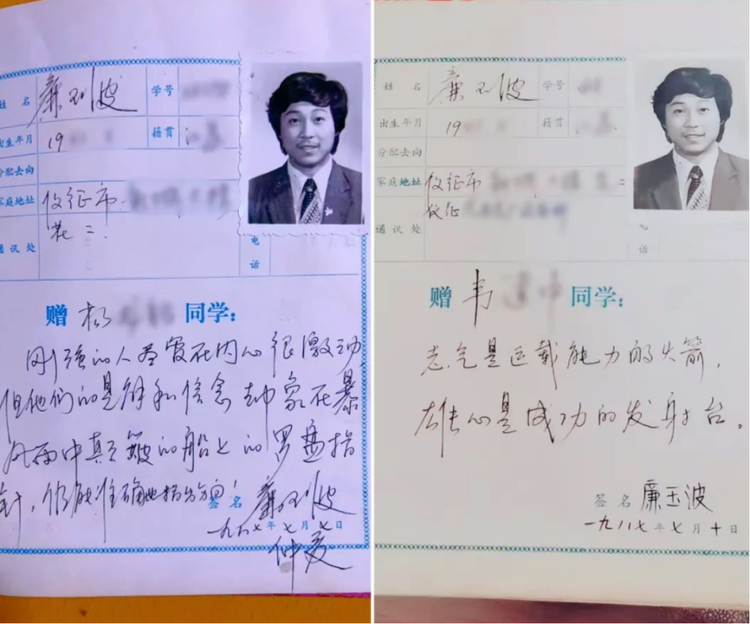 姓名 廉玉波 学号
出生年月 19 籍贯
分配去向
家庭地址 仪征市
通讯处 二 电话
赠 杨 同学：
刚强的人尽管在内心很激动
但他们的见解和信念却象在暴
风雨中颠簸的船上的罗盘指
针，仍能准确地指出方向！
签名 廉玉波
一九八七年七月七日
仲夏
姓名 廉玉波 学号
出生年月 19 籍贯
分配去向
家庭地址 仪征市
通讯处 仪征 电话
赠 韦 同学：
志气是运载能力的火箭，
雄心是成功的发射台。
签名 廉玉波
一九八七年七月十日